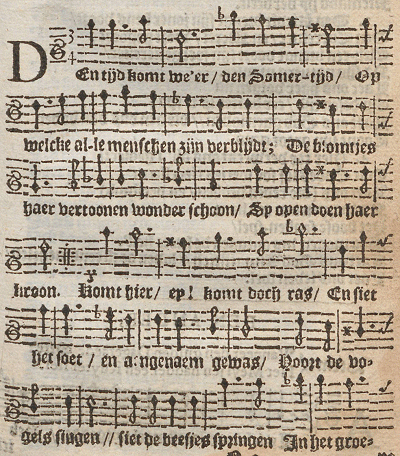 DEn tijd komt we'er / den Somer-tijd / Op
welcke al-le menschen zijn verblijdt; De blomtjes
haer vertoonen wonder schoon / Sy open doen haer
kroon. Komt hier / ey! komt doch ras / En siet
het soet / en aengenaem gewas / Hoort de vo-
gels singen // siet de beesjes springen In het groe-